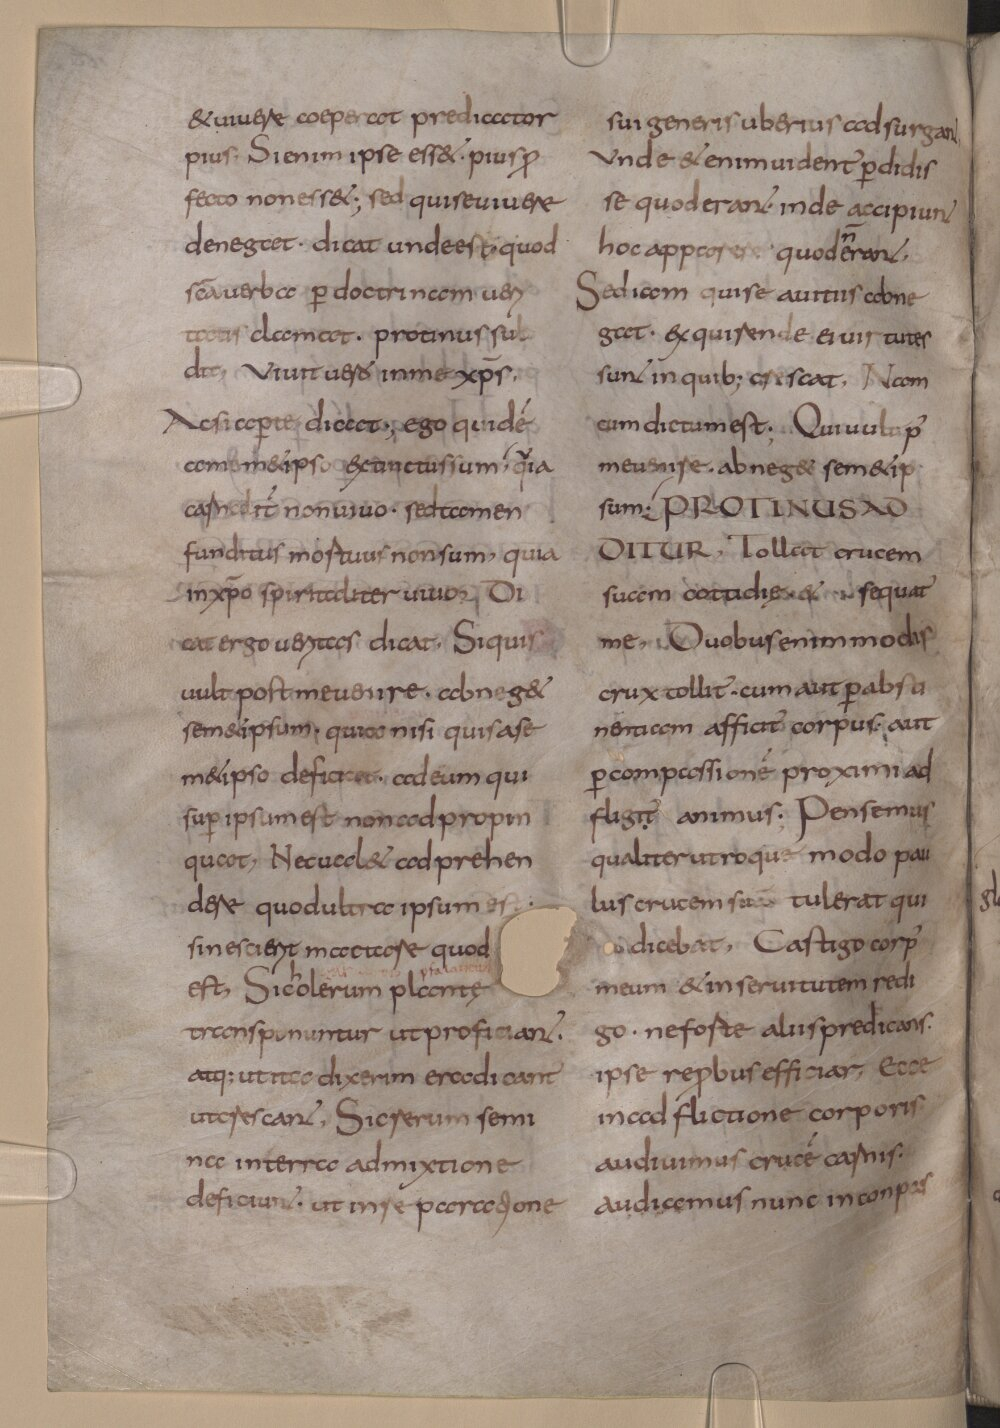 &uiuere coeperat predicator
pius. Si enim ipse ess&. pius p̄
fecto non ess&; sed qui se uiuere
denegat. dicat unde est. quod
sc̄a uerba p̱ doctrinam ueri
tatis clamat. protinus sub
dit, Uiuit uero in me xp̄s,
Ac si aperte dicat; ego quidē
a me m&ipso extinctus sum, quia
carnalit̄ non uiuo. sed tamen
funditus mortuus non sum, quia
in xp̄o spiritaliter uiuo; Di
cat ergo ueritas dicat, Si quis
uult post me uenire. abneg&
sem&ipsum. quia nisi quis a se
m&ipso deficiat. ad eum qui
sup̱ ipsum est non adpropin
quat, Nec ual& adprehen
dere quod ultra ipsum est.
si nescierit mactare quod
est, Sic holerum plantę
transponuntur ut proficiant.
atq; ut ita dixerim eradicant̄
ut crescant, Sic rerum semi
na in terra admixtione
deficiunt. ut in se paratione
sui generis uberius adsurgant
Unde & enim uident̄ p̱didis
se quod erant. inde accipiunt
hoc appar quod n̄ erant.
Sed iam qui se a uitiis abne
gat. exquirende ei uirtutes
sunt in quib; crescat, Nam
cum dictum est. Qui uult p̄
me uenire. abneg& sem&ip
sum; PROTINUS AD
DITUR, Tollat crucem
suam cottidię & sequat̄
me, Duobus enim modis
crux tollit̄. cum aut p̱ absti
nentiam afficit̄ corpus. aut
p̱ compassionē proximi ad
fligit̄ animus; Pensemus
qualiter utroque modo pau
lus crucem suā tulerat qui
dicebat, Castigo corp̄
meum & in seruitutem redi
go. ne forte aliis predicans.
ipse reprobus efficiar, Ecce
in adflictione corporis
audiuimus crucē carnis.
audiamus nunc in conpas